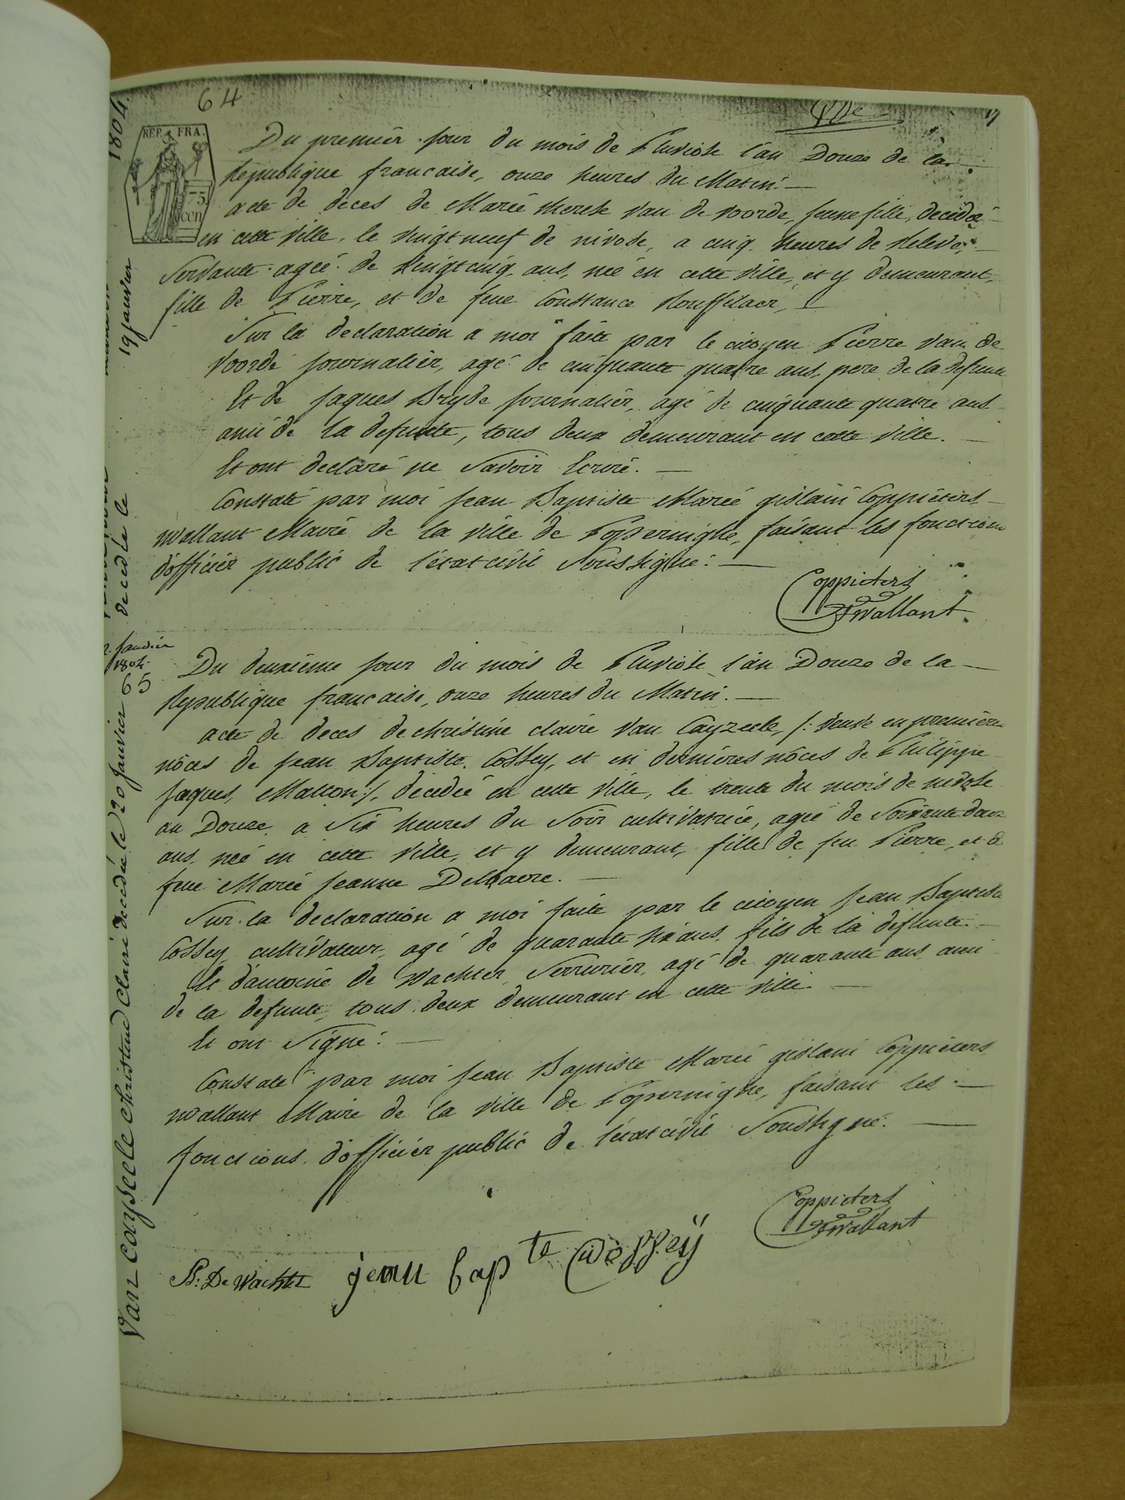 64
17
REP. FRA.
75
CEN
Du premier jour du mois de Pluviose l'an Douze de la
Republique francaise, onze heures du Matin. —
acte de deces de Marie therese Van de voorde, jeune fille, decedée
en cette ville, le vingtneuf de nivose, a cinq heures de relevée,
Servante agée de vingtcinq ans, née en cette ville, et y demeurant,
fille de Pierre, et de feue Constance
Sur la declaration a moi faite par le citoyen Pierre Van de
Voorde journalier, agé de cinquante quatre ans, pere de la defunte
Et de Jaques Bryde journalier, agé de cinquante quatre ans
ami de la defunte, tous deux demeurant en cette ville. —
Et ont declaré ne Savoir Ecrire. —
Constaté par moi Jean Baptiste Marie gislain Coppieters
wallant Maire de la ville de Poperinghe, faisant les fonctions
d'officier public de l'etat civil Soussigné: —
Coppieters
Wallant
19 Janvier
1804.
decedée le
2. Janvier
1804.
65
Du deuxième jour du mois de Pluviose l'an Douze de la —
Republique francaise, onze heures du Matin. —
acte de deces de christine claire Van Cayzeele, /: veuve en premières
nôces de Jean Baptiste Cossey, et en dernières nôces de Philippe
Jaques Matton :/, decedée en cette ville, le trente du mois de nivose
an Douze, a Six heures du Soir cultivatrice, agée de Soixante douze
ans, née en cette ville, et y demeurant, fille de feu Pierre, et d
feue Marie Jeanne Delbaere. —
Sur la declaration a moi faite par le citoyen Jean Baptiste
Cossey cultivateur, agé de quarante six ans, fils de la defunte. —
Et d'antoine de Wachter, Serrurier, agé de quarante ans, ami
de la defunte, tous deux demeurant en cette ville. —
Et ont Signé: —
Constaté par moi Jean Baptiste Marie gislain Coppieters
wallant Maire de la ville de Poperinghe, faisant les —
fonctions d'officier public de l'etat civil Soussigné. —
Coppieters
Wallant
De Wachter
jean bapte Cossey
Van Cayseele Christine Claire decedée le 20 Janvier